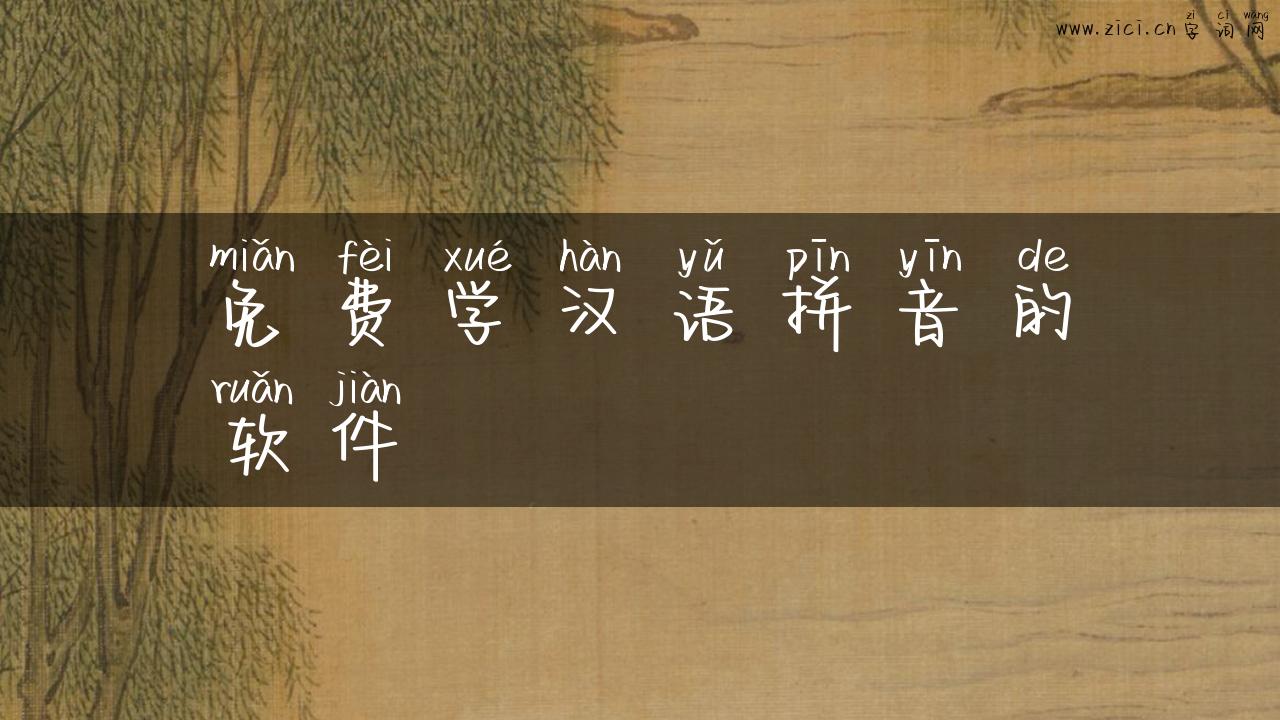 zì cí wǎng
www.zici.cn 字词网
miǎn fèi xué hàn yǔ pīn yīn de
免费学汉语拼音的
ruǎn jiàn
软件